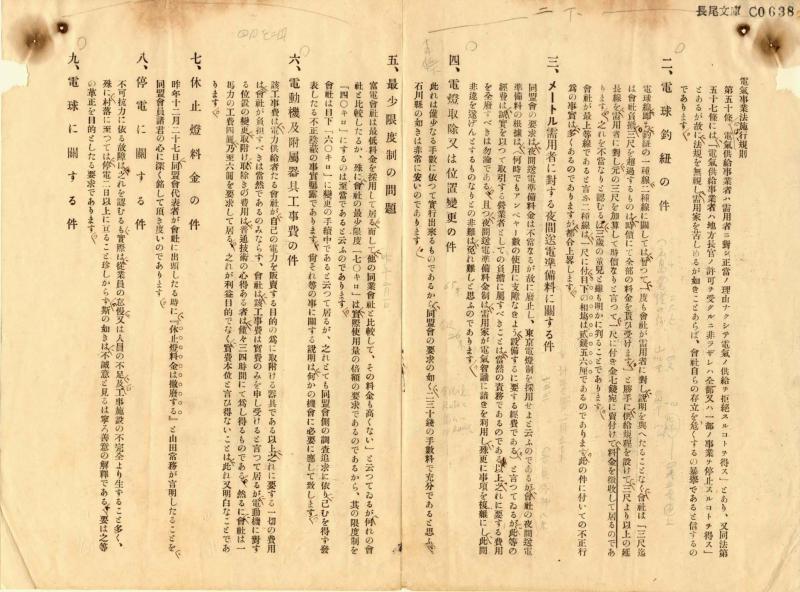 長尾文庫 C0638
電氣事業法施行規則
第五十條、「電氣供給事業者ハ需用者ニ對シ正當ノ理由ナクシテ電氣ノ供給ヲ拒絕スルコトヲ得ス」とあり、又同法第
五十七條には「電氣供給事業者ハ地方長官ノ許可ヲ受グルニ非ラザレハ全部又ハ一部ノ事業ヲ停止スルコトヲ得ス」
とあるが故に法規を無視し需用家を苦しめるが如きことあらば、會社自らの存立を危くするの暴擧であると信するの
であります。
二、電球釣紐の件
電球線即ち釣紐の一種級二種線に關しては曾つて一度も會社が需用者に對し說明を與へたることなく會社は「三尺迄
は會社負擔三尺を超過するものは時價にて全部の料金を貰ひ受けます」と勝手に供給規程を設けて三尺より以上の延
長線を需用者に對し元の三尺を加算して時價なりと言つて一尺に付き金七錢宛に賣付けて料金を徵收して居るのであ
ります。之れを不當なりと認むるは三歲の童兒と雖も明かに判ることであります。
會社が最上等線であると言ふ一種線は一尺に付目下の相場は貳錢五六厘であるのであります此の件に付いての不正行
爲の事實は多々あるのでありますが都合上畧します。
三、メートル需用者に對する夜間送電準備料に關する件
同盟會の要求は夜間送電準備料金は不當なるが故に廢止し、東京電燈制を採用せよと云ふのであるが會社の夜間送電
準備料の根據は、「何時でもアンペヤー數の使用に支障なきよう設備するに要する經費である」と言つてゐるが此等の
經費は誠實を以つて取引する營業者としての負擔に屬すべきことは當然の責務であるのである以上之れに要する費用
を全廢すべきは勿論である、且つ夜間送電準備料金制は需用家が電氣智識に諳きを利用し殊更に事項を複雜にし此間
非違を遂げんとするものなりとの非難は免れ難しと思ふのであります。
四、電燈取除又は位置變更の件
此れは僅少なる手數に依つて實行出來るものであるから同盟會の要求の如く二三十錢の手數料で充分であると思ふ、
石川縣の如きは非常に安いのであります。
五、最少限度制の問題
富電會社は最低料金を採用して居る而して「他の同業會社と比較して、その料金も高くない」と云つてゐるが何れの會
社と比較したるか、殊に會社の最少限度「七〇キロ」は實際使用量の倍額の要求であるのであるから、其の限度制を
「四〇キロ」にするのは至當であると云ふのであります。
會社は目下「六〇キロ」に變更の手續中であると云つて居るが、之れとても同盟會側の調査追求に依り已むを得す發
表したる不正陰蔽の事實曝露であります、尙それ等の事に關する說明は何かの機會に必要に應して致します。
六、電動機及附屬器具工事費の件
該工事費は電力供給者たる會社が自己の電力を販賣する目的の爲に取附ける器具である以上之れに要する一切の費用
は會社が負担すべきは當然であるのみならず、會社は該工事費は實費のみを申し受けると言つて居るが電動機に對す
る位置の變更取附け取除きの費用は普通技術の心得ある者は僅々三四時間にて爲し得るものである、然るに會社は一
馬力の工費四圓乃至六圓を要求して居る、之れが利益目的でなく實費本位と言ひ得ないことは此れ又明白なことであ
ります。
七、休止燈料金の件
昨年十二月二十七日同盟會代表者が會社に出頭したる時に「休止燈料金は撤廢する」と山田常務が言明したることを
同盟會員諸君の心に深く銘して頂き度いのであります。
八、停電に關する件
不可抗力に依る故障は之れを認むるも實際は從業員の怠慢又は人員の不足及工事施設の不完全より生すること多く、
殊に村落に至つては停電二日以上に亘ること珍しからす斯の如きは不誠意と見るは寧ろ善意の解釋である、要は之等
の革正を目的としたる要求であります。
九、電球に關する件